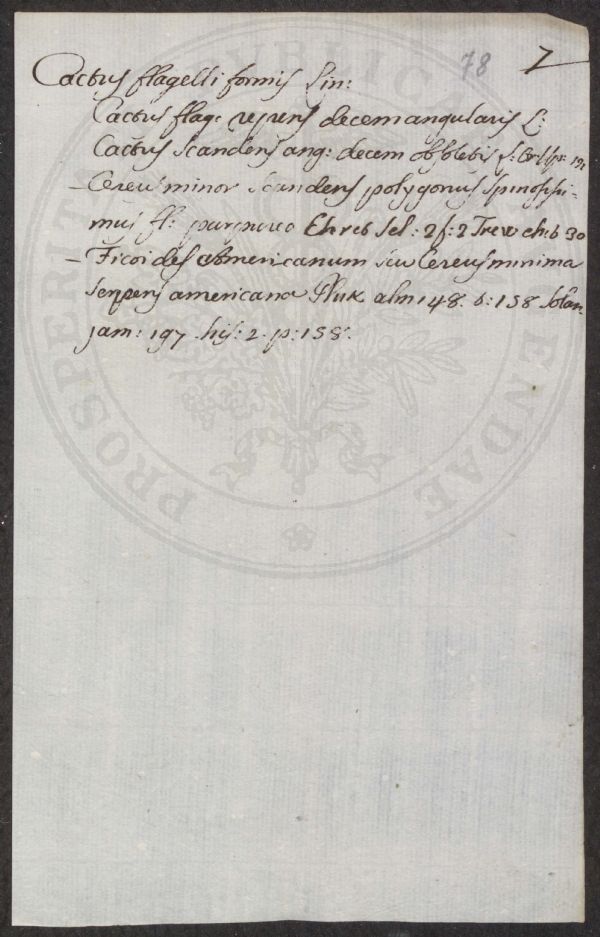 78 7
Cactus flagelli formis Lin:
Cactus flag: repens decemangularis L:
Cactus scandens ang: decem obsoletis
– Cereus minor scandens polygonus spinosissi-
mus fl: purpureo Ehret Sel: 2 f: 2 Trew 30
– Ficoides Americanum siu Cereus minima
serpens americana Pluk alm 148. t: 158
jam: 197 his: 2. p: 158.
PUBLICA
PROSPERITA
ENDAE